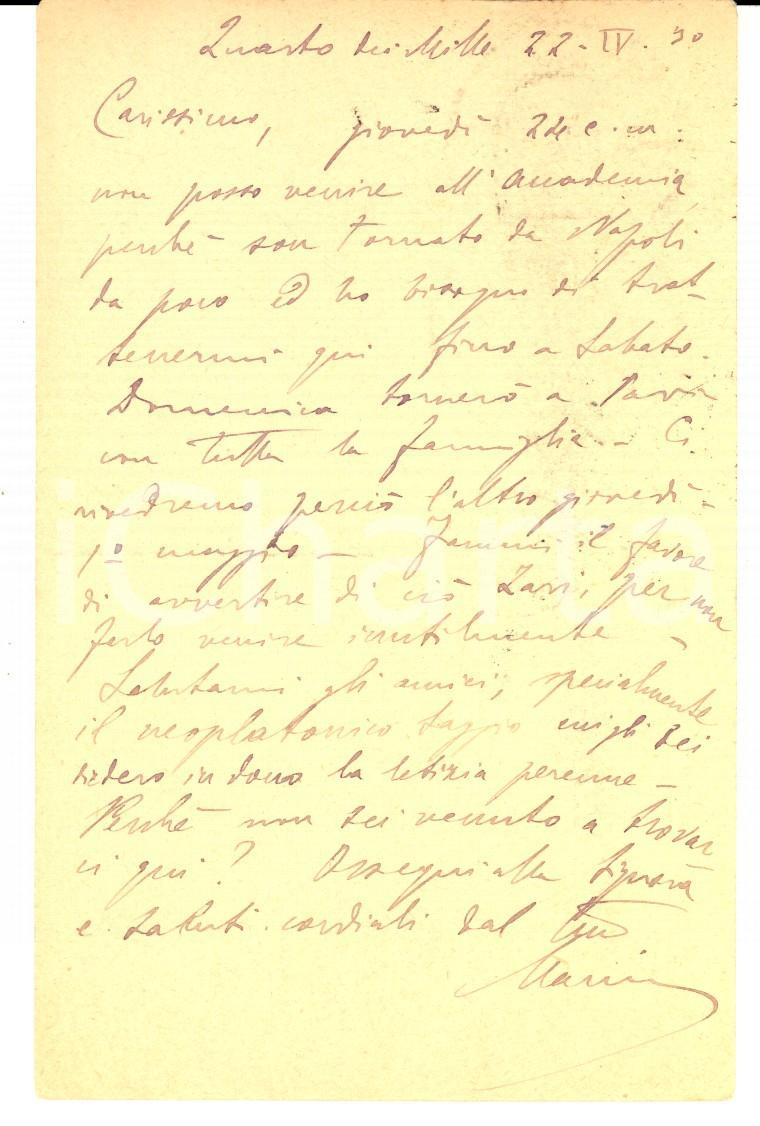 Quarto dei Mille 22-IV.30
Carissimo, giovedì 24 c.m.
non posso venire all'Accademia,
perché son tornato da Napoli
da poco ed ho bisogno di trat-
tenermi qui fino a Sabato.
Domenica tornerò a Pavia
con tutta la famiglia - Ci
rivedremo perciò l'altro giovedì -
1º maggio - Fammi il favore
di avvertire di ciò Zari, per non
farlo venire inutilmente -
Salutami gli amici, specialmente
il neoplatonico Saggio cui gli Dei
diedero in dono la letizia perenne -
Perché non sei venuto a trovar
ci qui? Ossequi alla Signora
e saluti cordiali dal tuo
iCharta